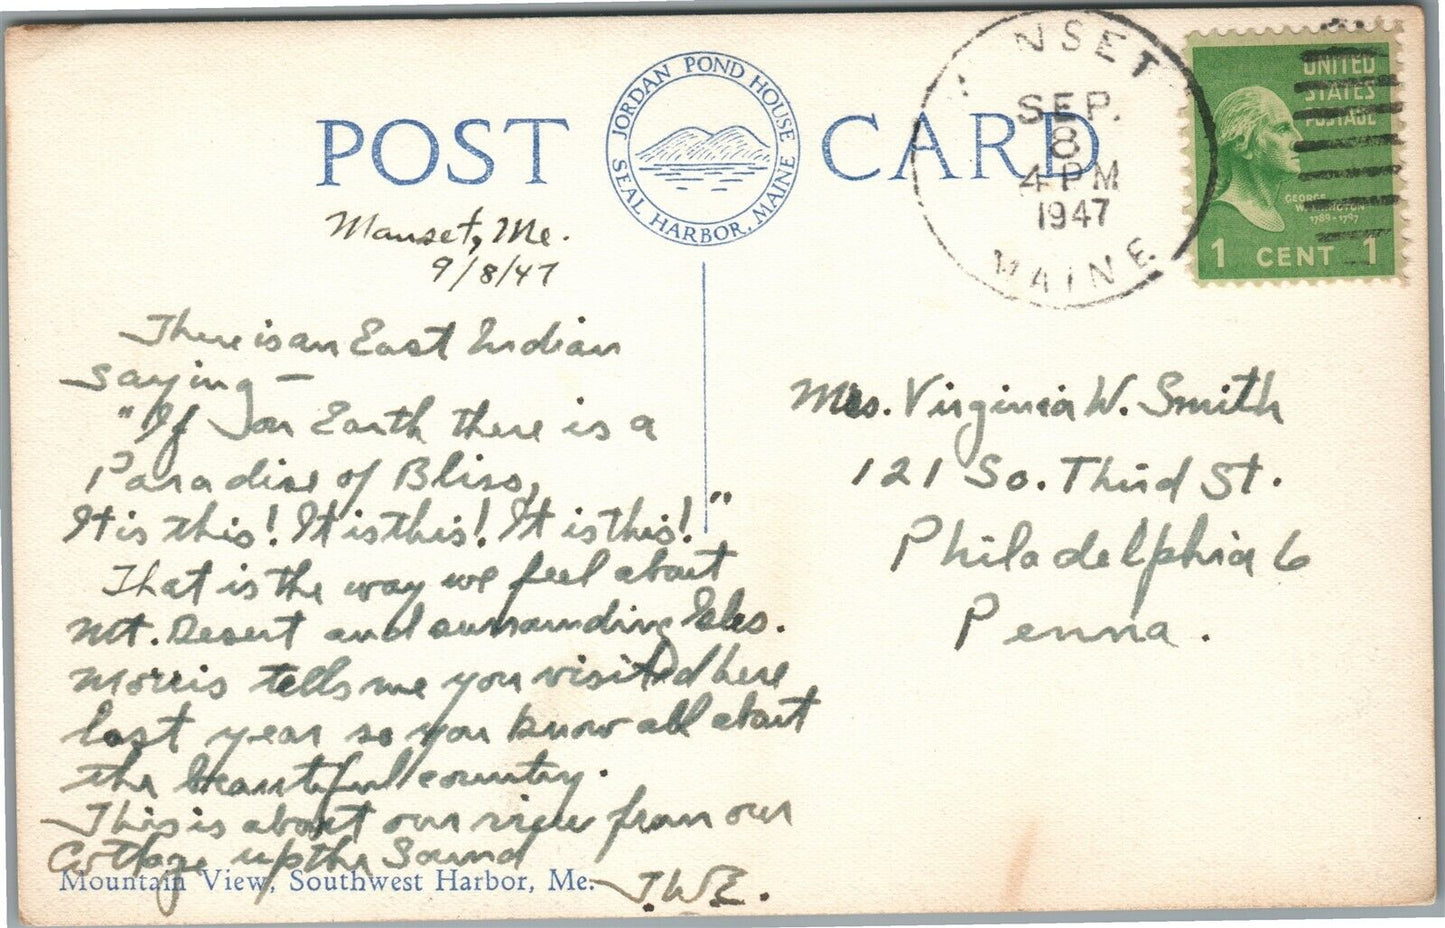 POST CARD
JORDAN POND HOUSE
SEAL HARBOR, MAINE
NSET
SEP.
8
4 PM
1947
MAINE
UNITED
STATES
POSTAGE
GEORGE
WASHINGTON
1789-1797
1 CENT 1
Manset, Me.
9/8/47
There is an East Indian
saying —
"If on Earth there is a
Paradise of Bliss,
It is this! It is this! It is this!"
That is the way we feel about
Mt. Desert and surrounding Isles.
Morris tells me you visited here
last year so you know all about
the beautiful country.
This is about our view from our
Cottage up the Sound
J.W.E.
Mountain View, Southwest Harbor, Me.
Mrs. Virginia W. Smith
121 So. Third St.
Philadelphia 6
Penna.